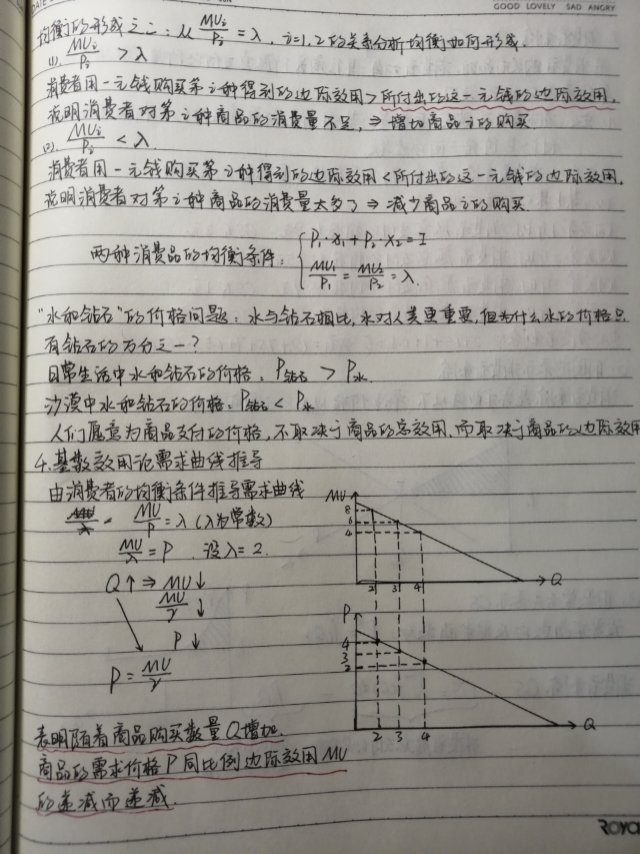 GOOD LOVELY SAD ANGRY
均衡的形成之二：从 MUi/Pi = λ, i=1,2的关系分析均衡如何形成.
(1). MUi/Pi > λ
消费者用一元钱购买第i种得到的边际效用>所付出的这一元钱的边际效用,
说明消费者对第i种商品的消费量不足, ⇒ 增加商品i的购买.
(2). MUi/Pi < λ.
消费者用一元钱购买第i种得到的边际效用<所付出的这一元钱的边际效用,
说明消费者对第i种商品的消费量太多了 ⇒ 减少商品i的购买
两种消费品的均衡条件: { P1·X1+P2·X2=I
MU1/P1 = MU2/P2 = λ.
"水和钻石"的价格问题：水与钻石相比, 水对人类更重要, 但为什么水的价格只
有钻石的万分之一?
日常生活中水和钻石的价格：P钻石 > P水
沙漠中水和钻石的价格：P钻石 < P水
人们愿意为商品支付的价格, 不取决于商品的总效用, 而取决于商品的边际效用
4. 基数效用论需求曲线推导
由消费者的均衡条件推导需求曲线
MU/P = λ (λ为常数)
MU/λ = P 设λ=2.
Q↑ ⇒ MU↓
MU/γ ↓
P↓
P = MU/γ
MU
8
6
4
2 3 4 Q
P
4
3
2
2 3 4 Q
表明随着商品购买数量Q增加.
商品的需求价格P同比例边际效用MU
的递减而递减.